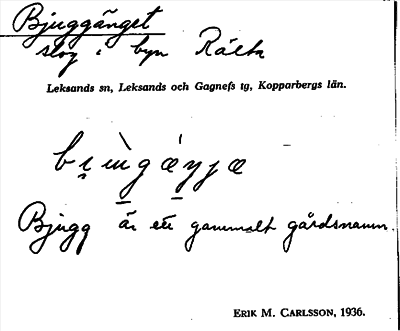 Bjuggänget
slog i byn Rälta
Leksands sn, Leksands och Gagnefs tg, Kopparbergs län.
Bjugg är ett gammalt gårdsnamn.
ERIK M. CARLSSON, 1936.